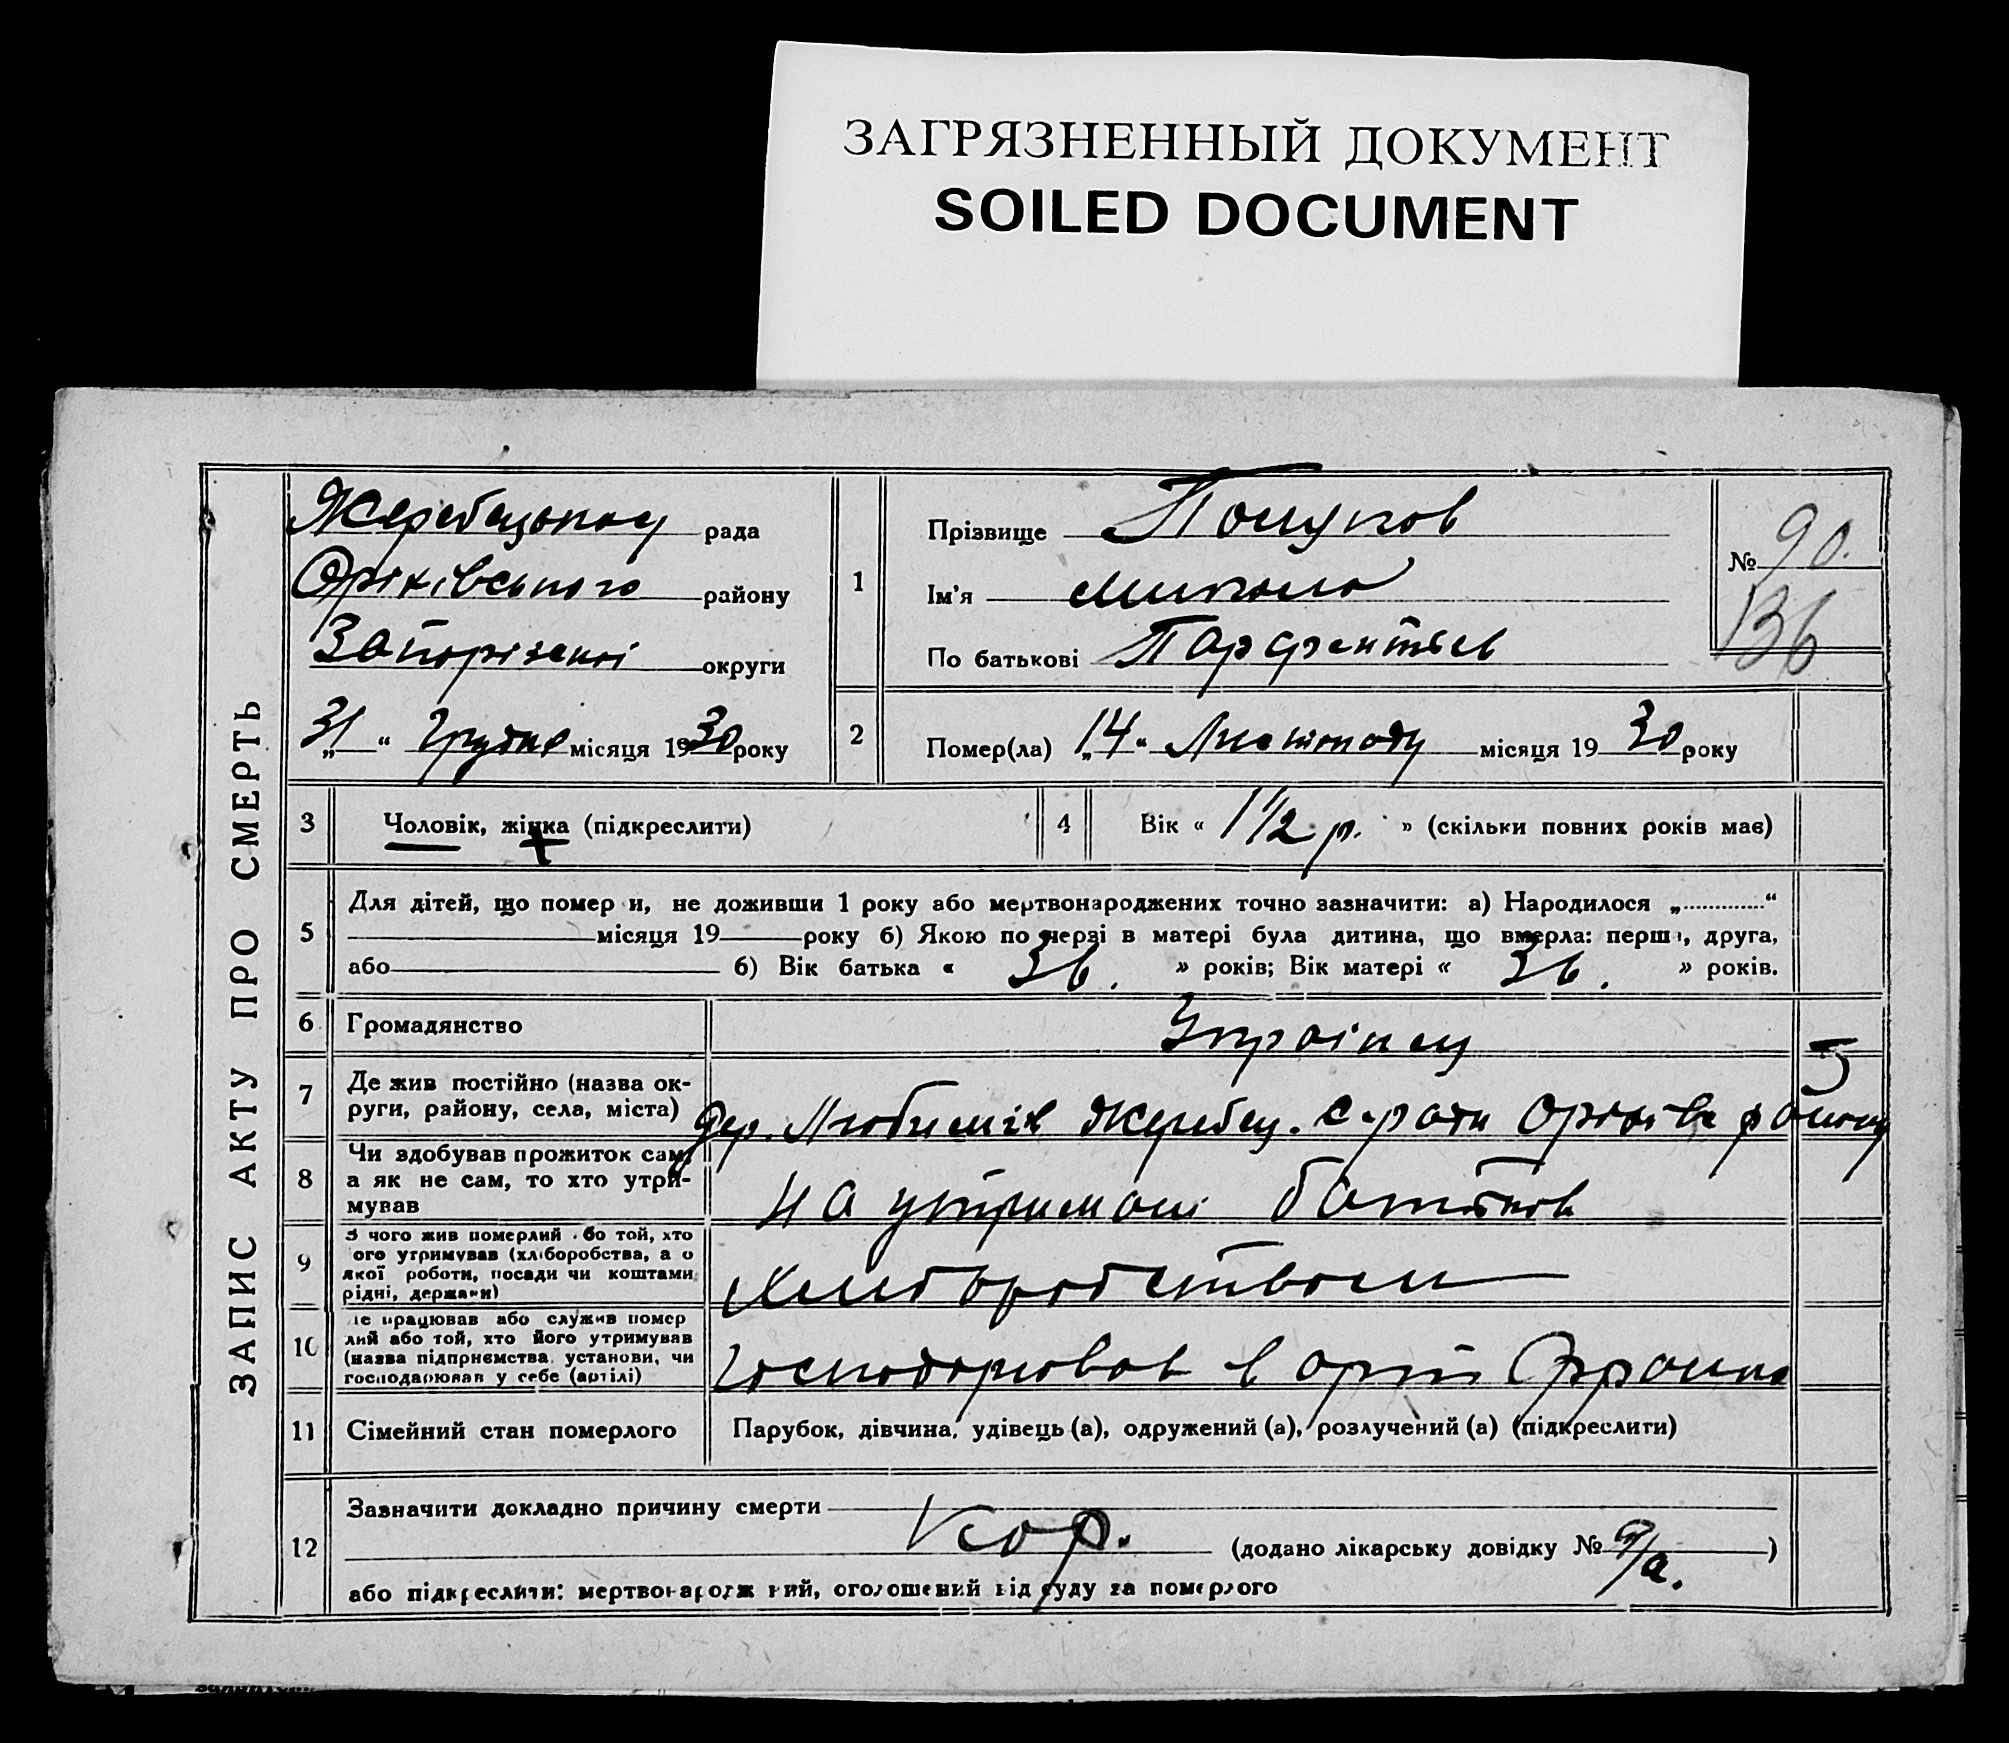 ЗАГРЯЗНЕННЫЙ ДОКУМЕНТ
SOILED DOCUMENT
ЗАПИС АКТУ ПРО СМЕРТЬ
рада
Оріхівського району
Запорізької округи
„31“ Грудня місяця 1930 року
1
Прізвище
Ім'я Микола
По батькові Парфентьев
№ 90.
136
2
Помер(ла) „14“ Листопаду місяця 1930 року
3 Чоловік, жінка (підкреслити)
4 Вік « 1 1/2 р. » (скільки повних років має)
5 Для дітей, що померли, не доживши 1 року або мертвонароджених точно зазначити: а) Народилося „ “
місяця 19 року б) Якою по черзі в матері була дитина, що вмерла: перша, друга,
або б) Вік батька « 36. » років; Вік матері « 36. » років.
6 Громадянство Українец
5
7 Де жив постійно (назва ок-
руги, району, села, міста)
дер. Жеребец. с-ради району
8 Чи здобував прожиток сам,
а як не сам, то хто утри-
мував
на утримані батьків
9 З чого жив померлий або той, хто
його утримував (хліборобства, або
якої роботи, посади чи коштами
рідні, держави)
Хліборобством
10 Де працював або служив помер
лий або той, хто його утримував
(назва підприємства, установи, чи
господарював у себе (артілі)
Господарював в арті Франка
11 Сімейний стан померлого Парубок, дівчина, удівець (а), одружений (а), розлучений (а) (підкреслити)
12 Зазначити докладно причину смерти
Кор. (додано лікарську довідку № )
або підкреслити: мертвонароджений, оголошений від суду за померлого